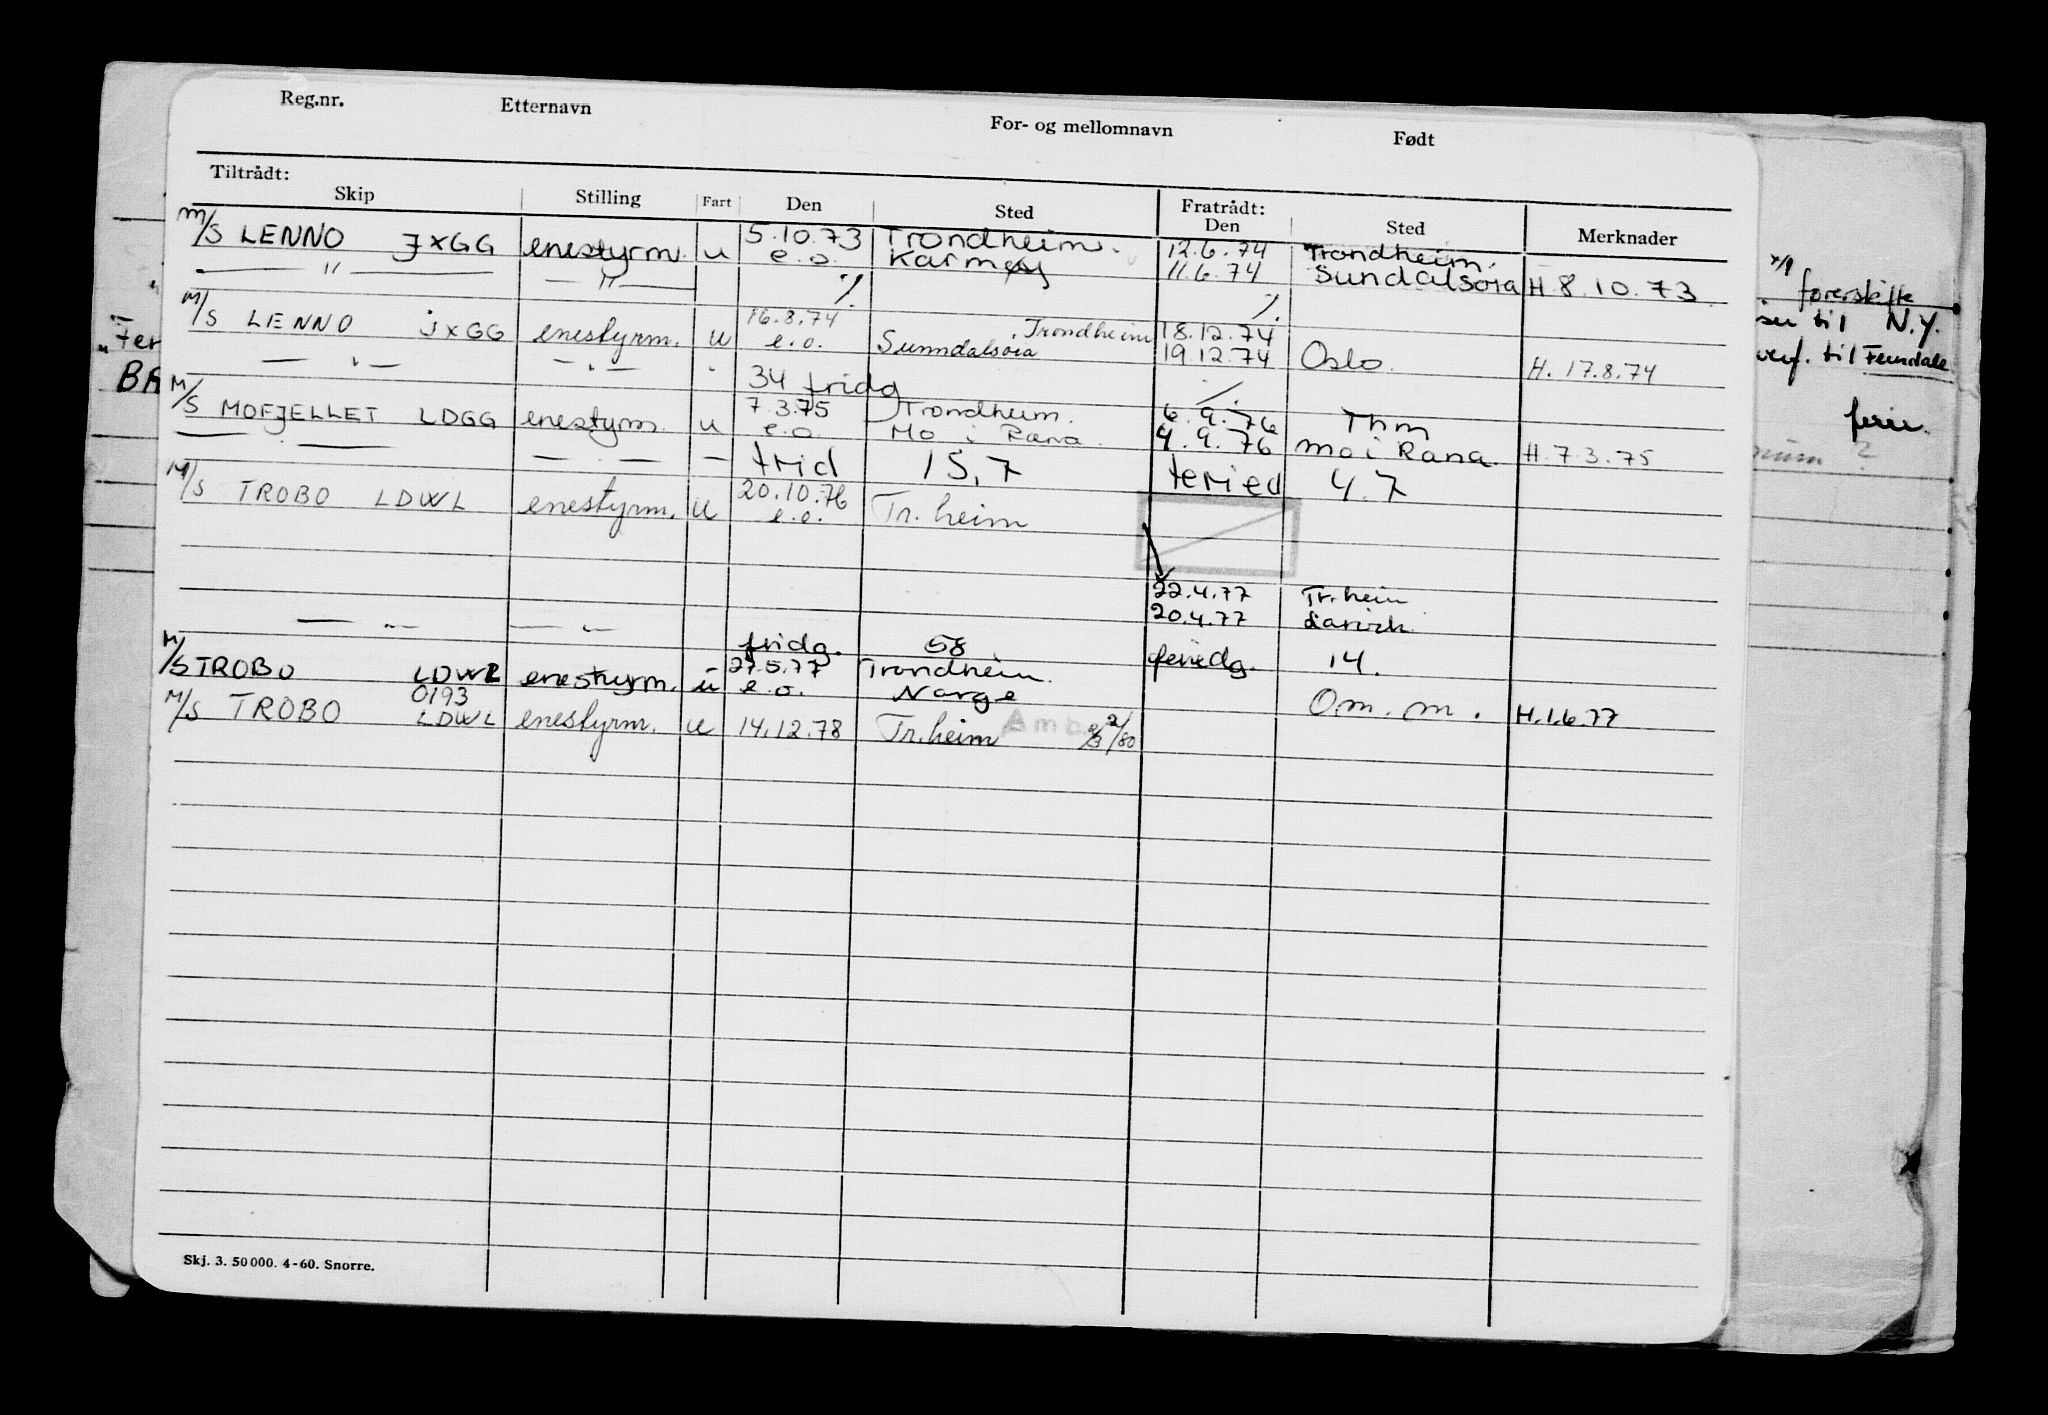 Reg.nr. Etternavn For- og mellomnavn Født
Tiltrådt: Fratrådt:
Skip Stilling Fart Den Sted Den Sted Merknader
M/S LENNO JXGG enestyrm. u 5.10.73 Trondheim. 12.6.74 Trondheim.
— " — — " — e.o. Karmøy 11.6.74 Sundalsøra H 8.10.73.
./. ./.
M/S LENNO JXGG enestyrm. u 16.8.74 Trondheim 18.12.74
e.o. Sunndalsøra 19.12.74 Oslo. H. 17.8.74
— " — — " — " 34 fridg ./.
M/S MOFJELLET LDGG enestyrm. u 7.3.75 Trondheim. 6.9.76 Thm
e.o. Mo i Rana. 4.9.76 mo i Rana. H.7.3.75
— . — — . — — frid 15,7 feried 4.7
M/S TROBO LDWL enestyrm. u 20.10.76
e.o. Tr.heim
22.4.77 Tr.heim
20.4.77 Larvik.
— " — — " — fridg. 58 feriedg. 14.
M/S TROBO LDWL enestyrm. u 27.5.77 Trondheim.
0193 e.o. Norge Om. m. H.1.6.77
M/S TROBO LDWL enestyrm. u 14.12.78 Tr.heim
Skj. 3. 50 000. 4-60. Snorre.
til N.Y.
til Ferndale
ferie.